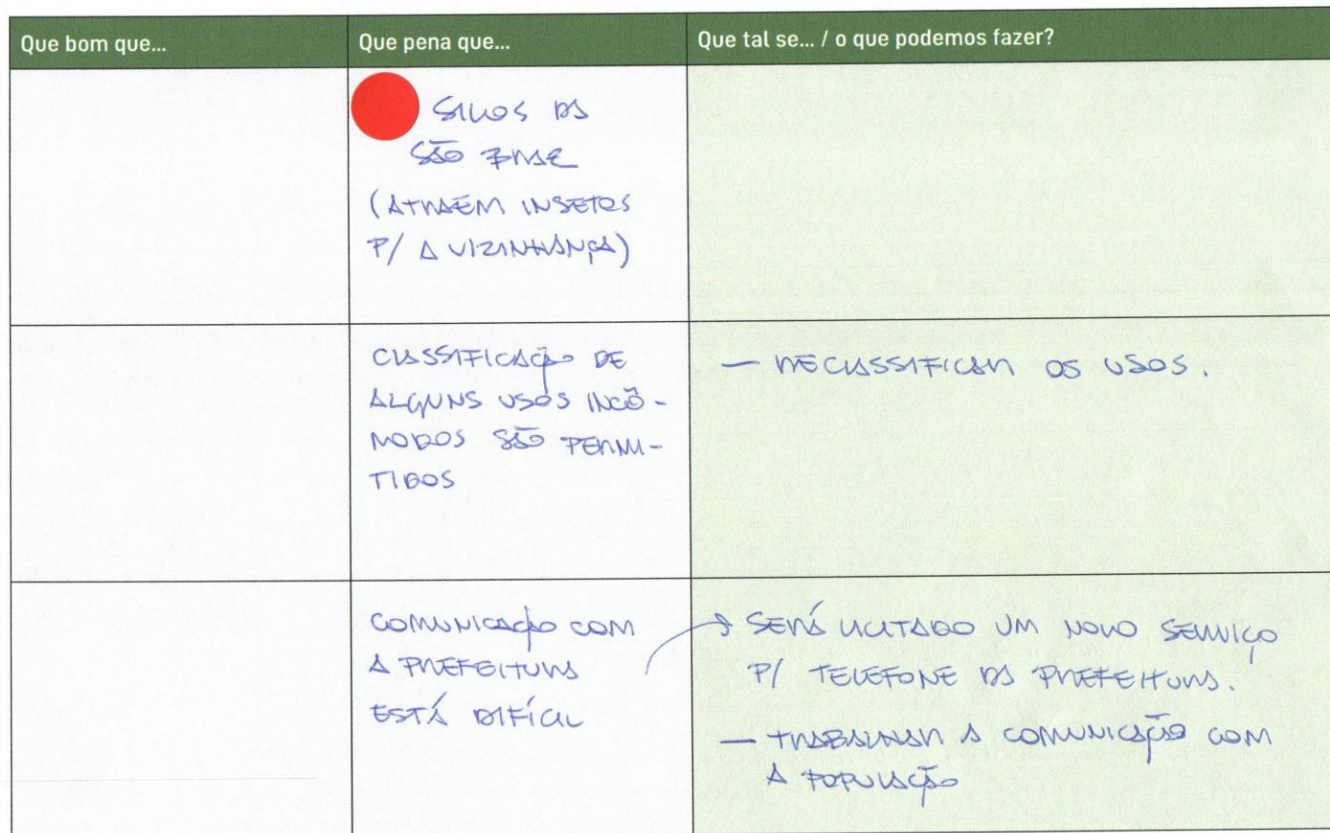 Que bom que...
Que pena que...
Que tal se... / o que podemos fazer?
SILOS DA
SÃO JOSÉ
(ATRAEM INSETOS
P/ A VIZINHANÇA)
CLASSIFICAÇÃO DE
ALGUNS USOS INCÔ-
MODOS SÃO PERMI-
TIDOS
— RECLASSIFICAR OS USOS.
COMUNICAÇÃO COM
A PREFEITURA
ESTÁ DIFÍCIL
→ SERÁ LICITADO UM NOVO SERVIÇO
P/ TELEFONE DA PREFEITURA.
— TRABALHAR A COMUNICAÇÃO COM
A POPULAÇÃO